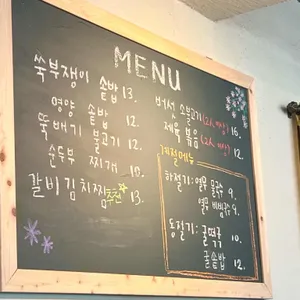 MENU
쑥부쟁이 솥밥 13.
영양 솥밥 12.
뚝배기 불고기 12.
순두부 찌개 10.
갈비김치찜 추천 13.
버섯 소불고기(2人 이상) 16.
제육 볶음(2人 이상) 12.
계절메뉴
하절기: 열무 물국수 9.
열무 비빔국수 9.
동절기: 굴떡국 10.
굴솥밥 12.